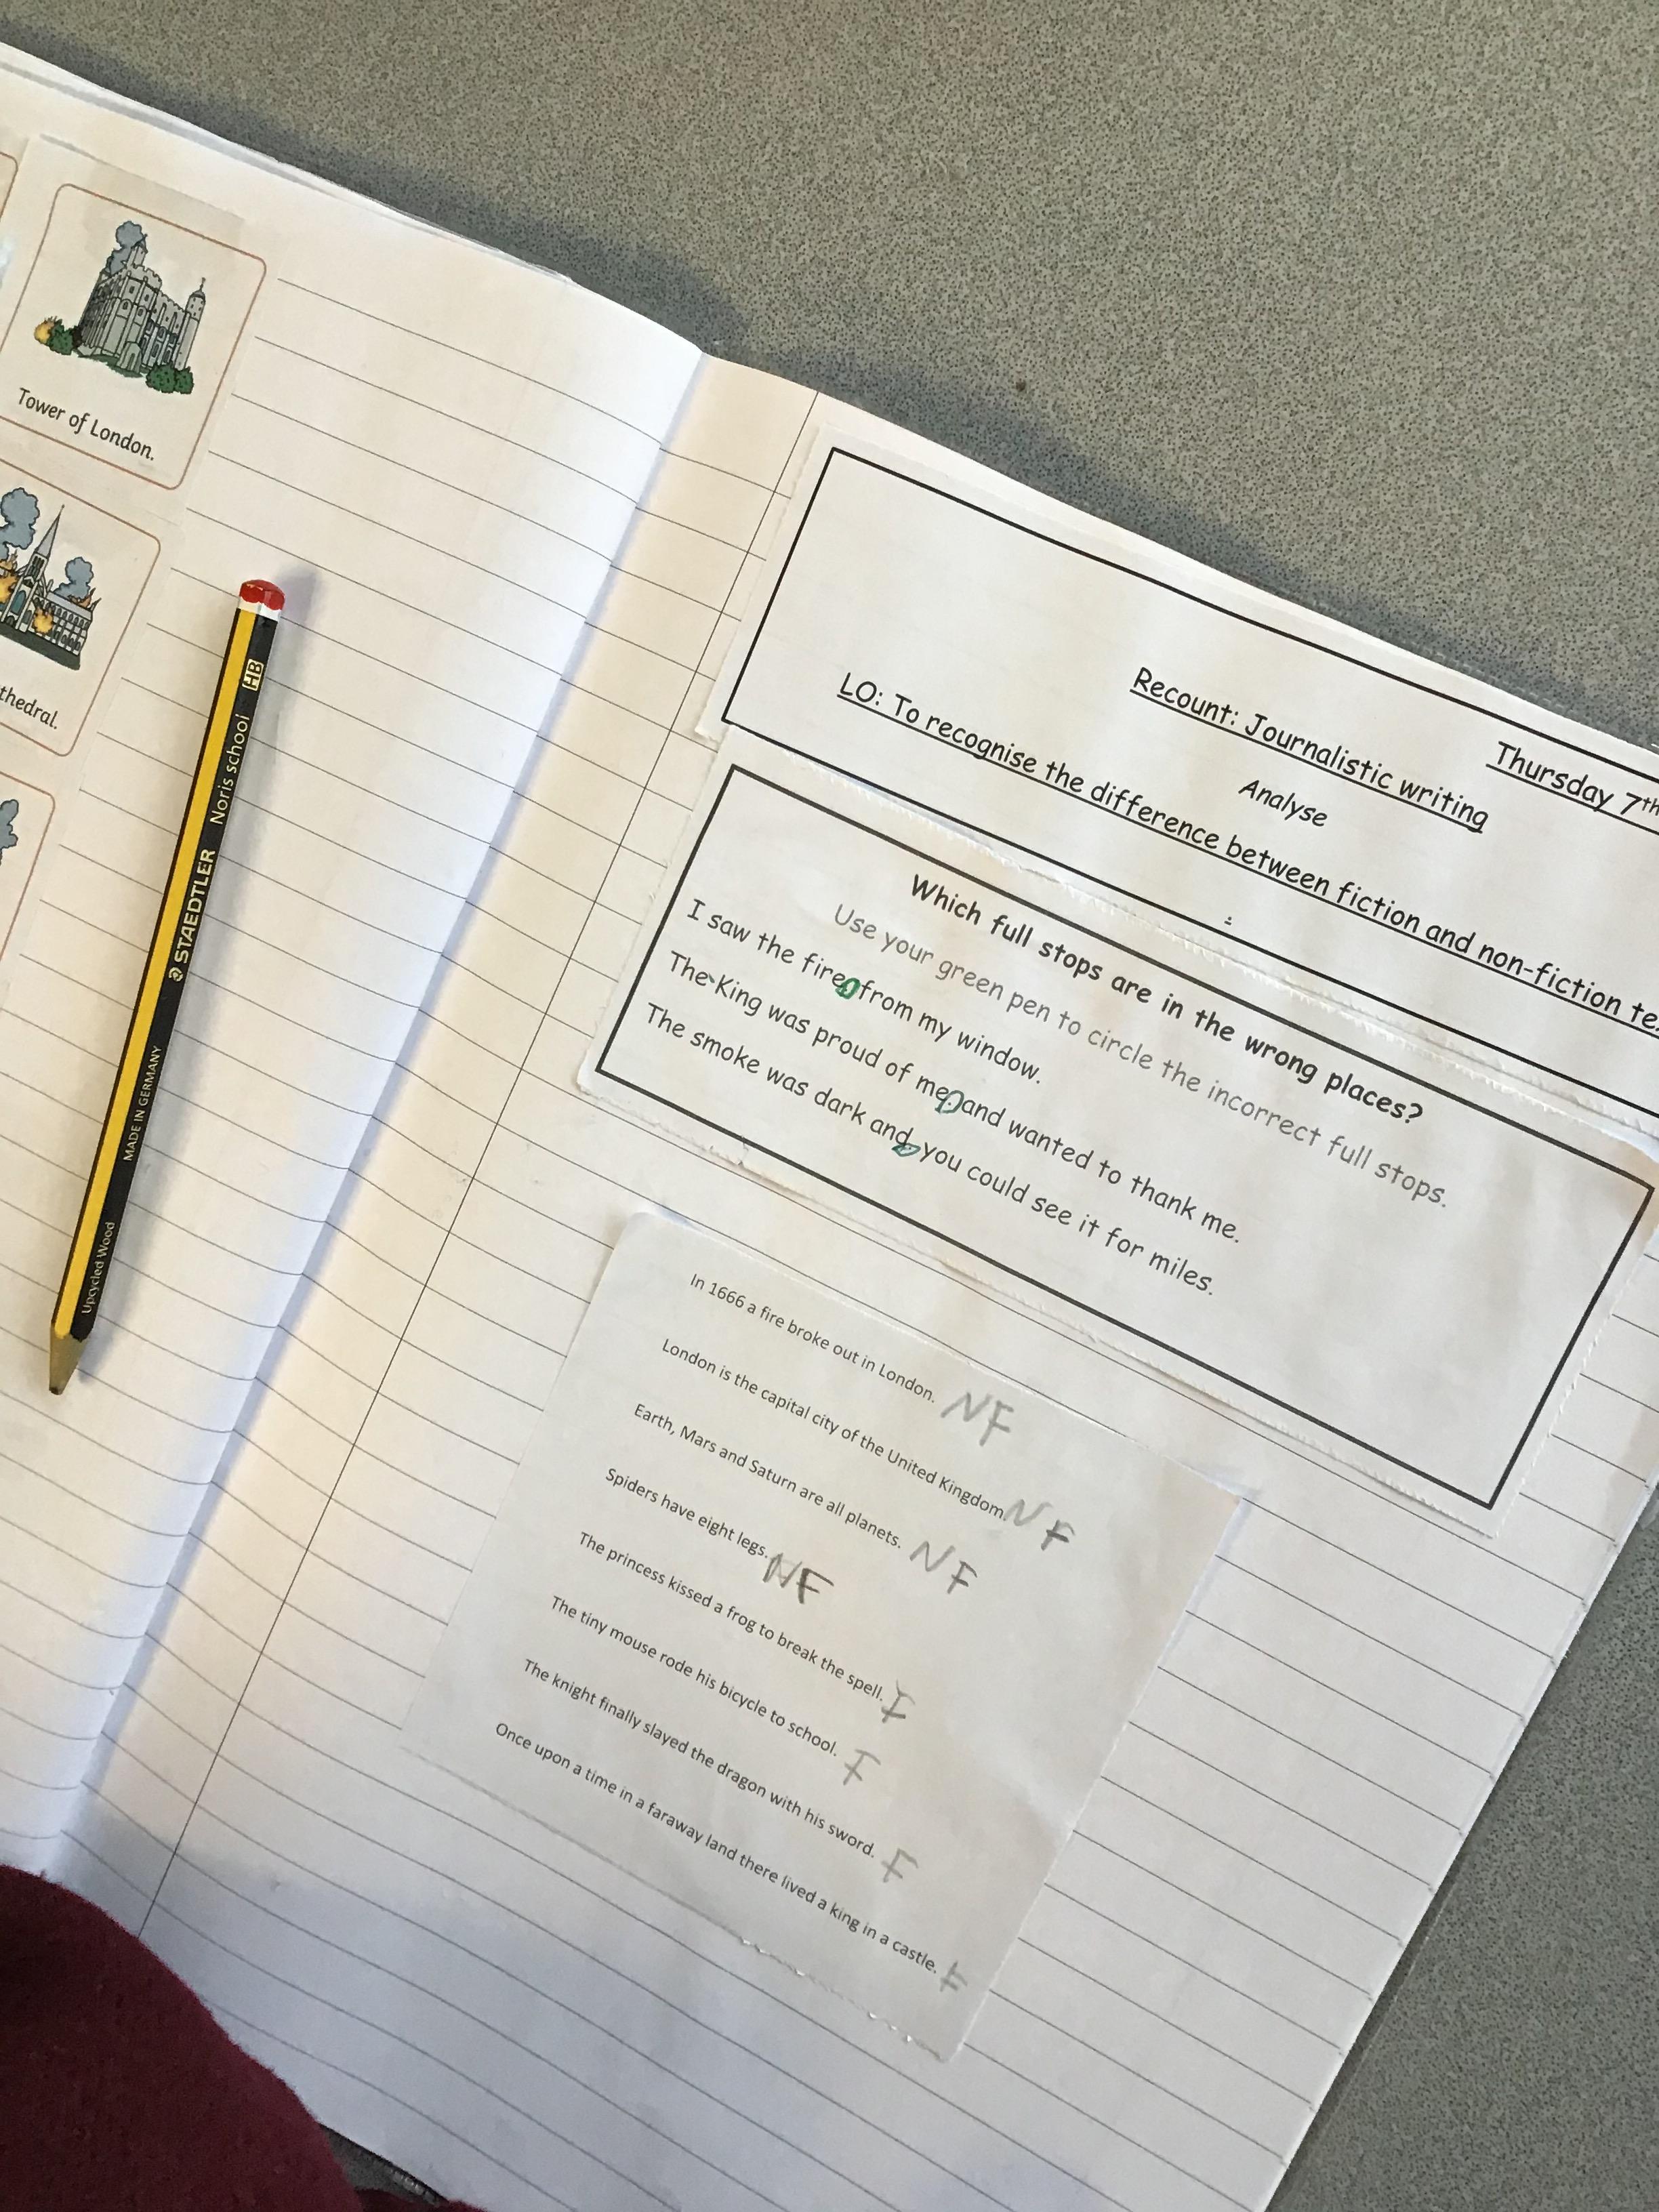 Tower of London.
thedral.
HB
Noris school
STAEDTLER
MADE IN GERMANY
Upcycled Wood
Thursday 7th
Recount: Journalistic writing
Analyse
LO: To recognise the difference between fiction and non-fiction
Which full stops are in the wrong places?
Use your green pen to circle the incorrect full stops.
I saw the fire. from my window.
The King was proud of me. and wanted to thank me.
The smoke was dark and. you could see it for miles.
In 1666 a fire broke out in London. NF
London is the capital city of the United Kingdom. NF
Earth, Mars and Saturn are all planets. NF
Spiders have eight legs. NF
The princess kissed a frog to break the spell. F
The tiny mouse rode his bicycle to school. F
The knight finally slayed the dragon with his sword. F
Once upon a time in a faraway land there lived a king in a castle. F